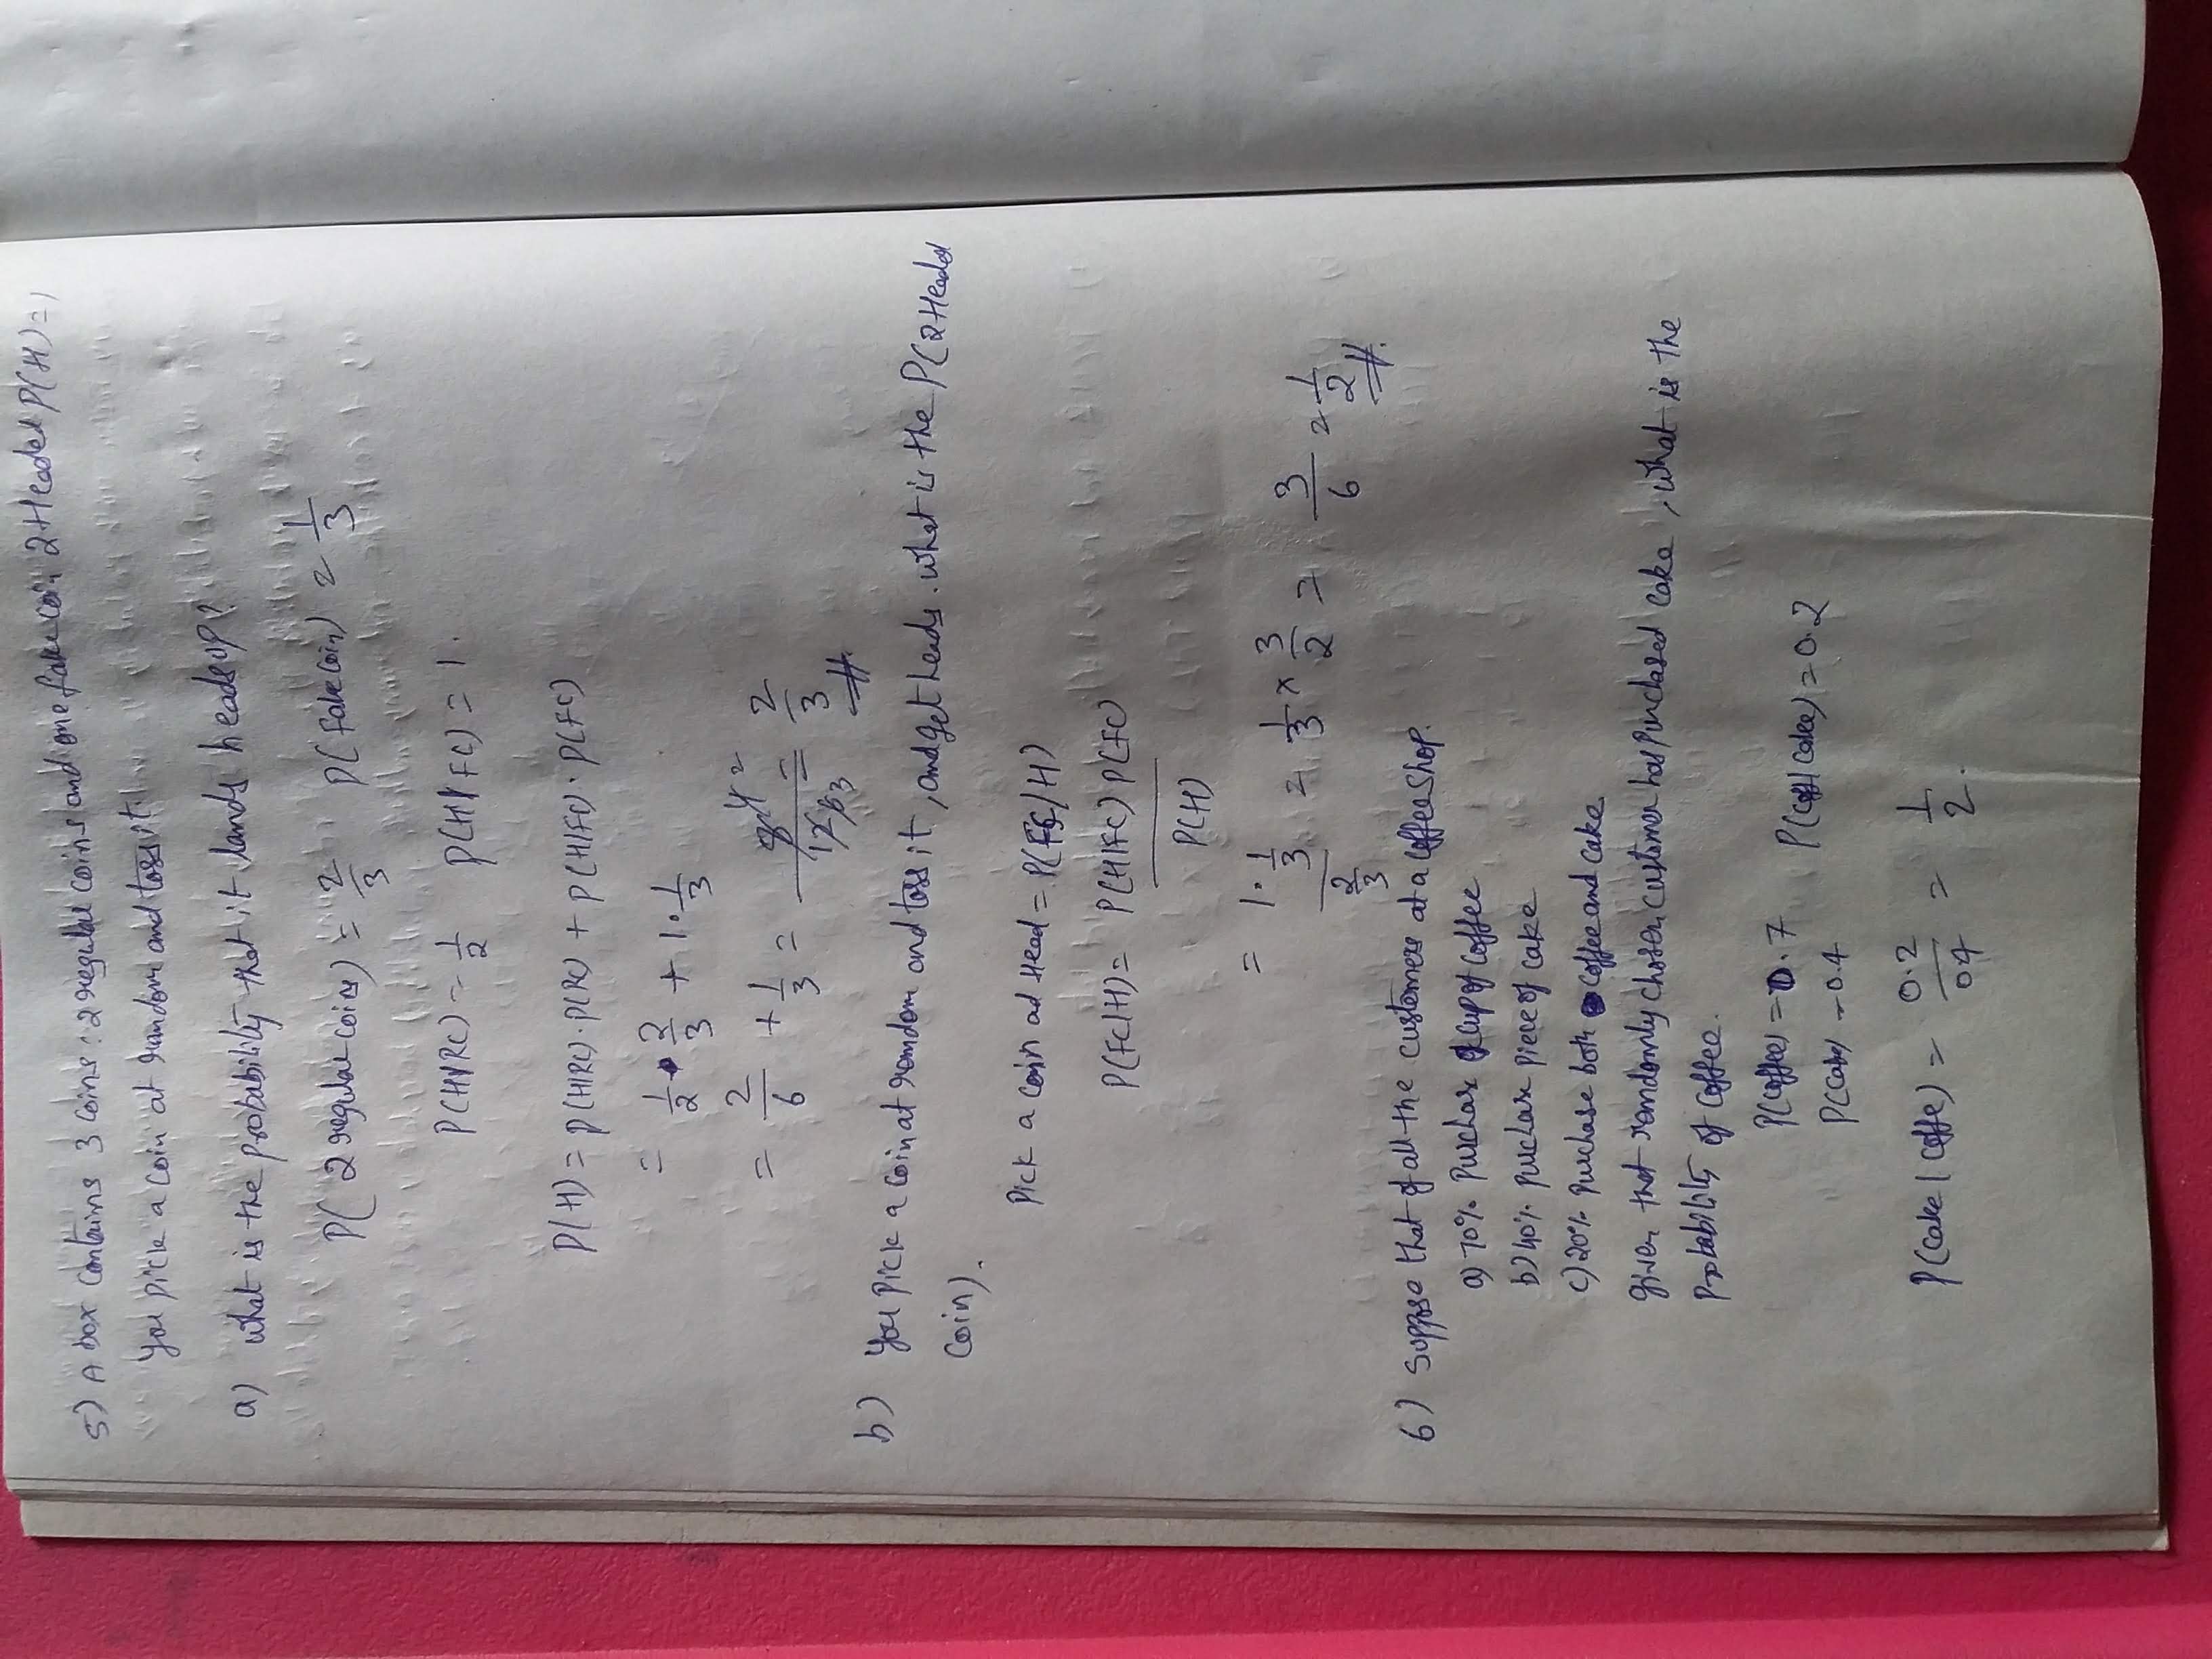 5) A box contains 3 coins: 2 regular coins and one fake coin 2 Headed P(H) = 1
You pick a coin at random and toss it.
a) what is the probability that it lands heads up?
P( 2 regular coins) = 2/3 P( fake coin) = 1/3
P(H|RC) = 1/2 P(H|FC) = 1.
P(H) = P(H|RC) . P(RC) + P(H|FC) . P(FC)
= 1/2 . 2/3 + 1 . 1/3
= 2/6 + 1/3 = 8 4 2 / 12 6 3 = 2/3
b) You pick a coin at random and toss it, and get heads. what is the P(2 Headed
coin).
Pick a coin ad Head = P(FC/H)
P(FC|H) = P(H|FC) P(FC)
P(H)
= 1 . 1/3 / 2/3 = 1/3 × 3/2 = 3/6 = 1/2
6) Suppose that of all the customers at a coffee shop.
a) 70% Purchase cup of coffee
b) 40% purchase piece of cake
c) 20% purchase both coffee and cake.
given that randomly chosen customer has purchased cake, what is the
probability of coffee.
P(coffee) = 0.7 P(coff|cake) = 0.2
P(cake) = 0.4
P(cake | coffe) = 0.2/04 = 1/2.